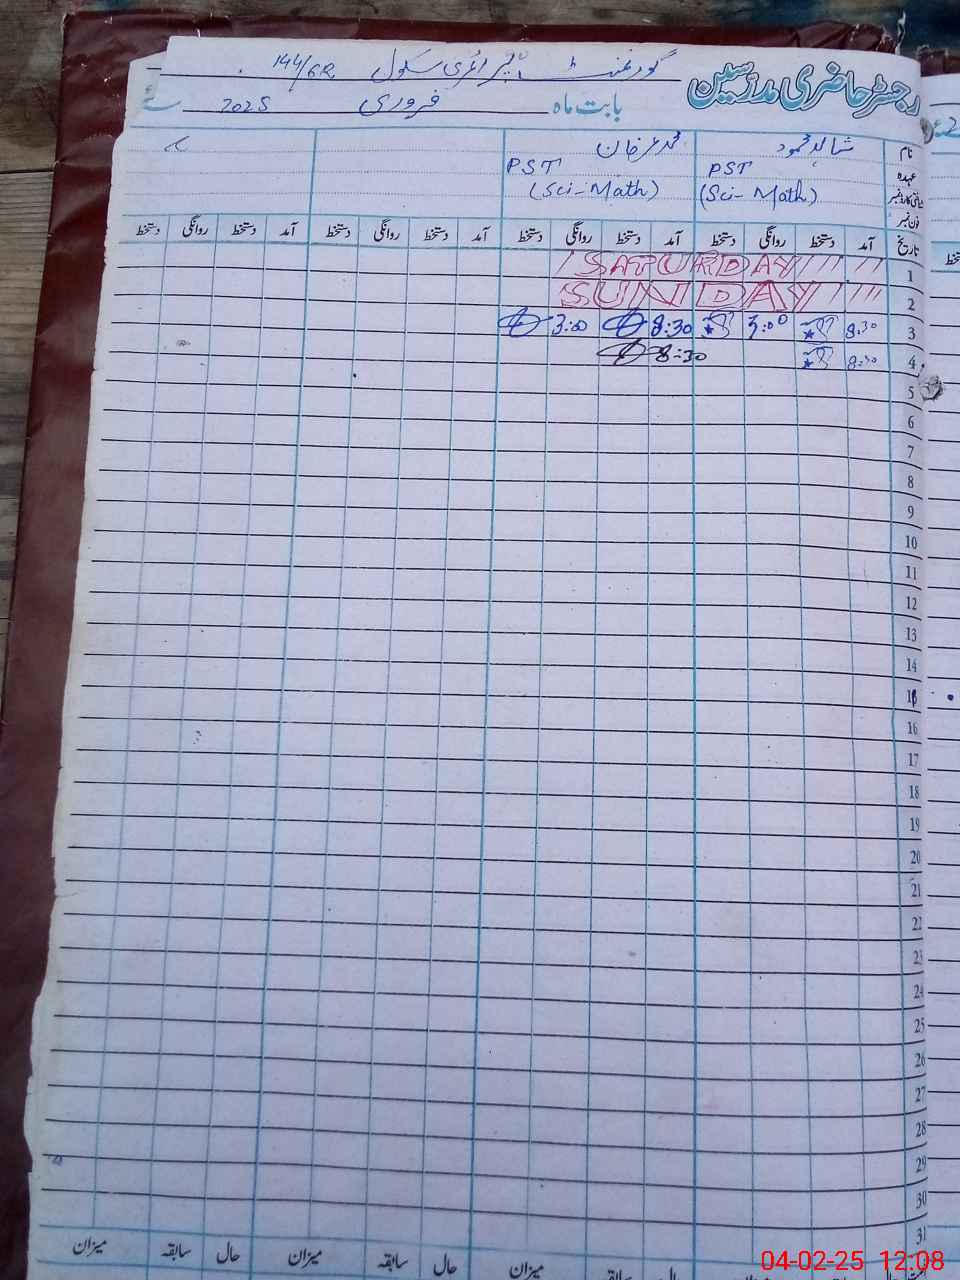 رجسٹر حاضری مدرسین گورنمنٹ پرائمری سکول 144/6R
بابت ماہ فروری 2025ء
نام شاہد محمود محمد عرفان
عہدہ PST PST
(Sci-Math) (Sci-Math)
فون نمبر
تاریخ آمد دستخط روانگی دستخط آمد دستخط روانگی دستخط آمد دستخط روانگی دستخط آمد دستخط روانگی دستخط
1 SATURDAY
2 SUNDAY
3 8:30 3:00 8:30 3:00
4 8:30 8:30
5
6
7
8
9
10
11
12
13
14
15
16
17
18
19
20
21
22
23
24
25
26
27
28
29
30
31
میزان حال سابقہ میزان حال سابقہ میزان
04-02-25 12:08